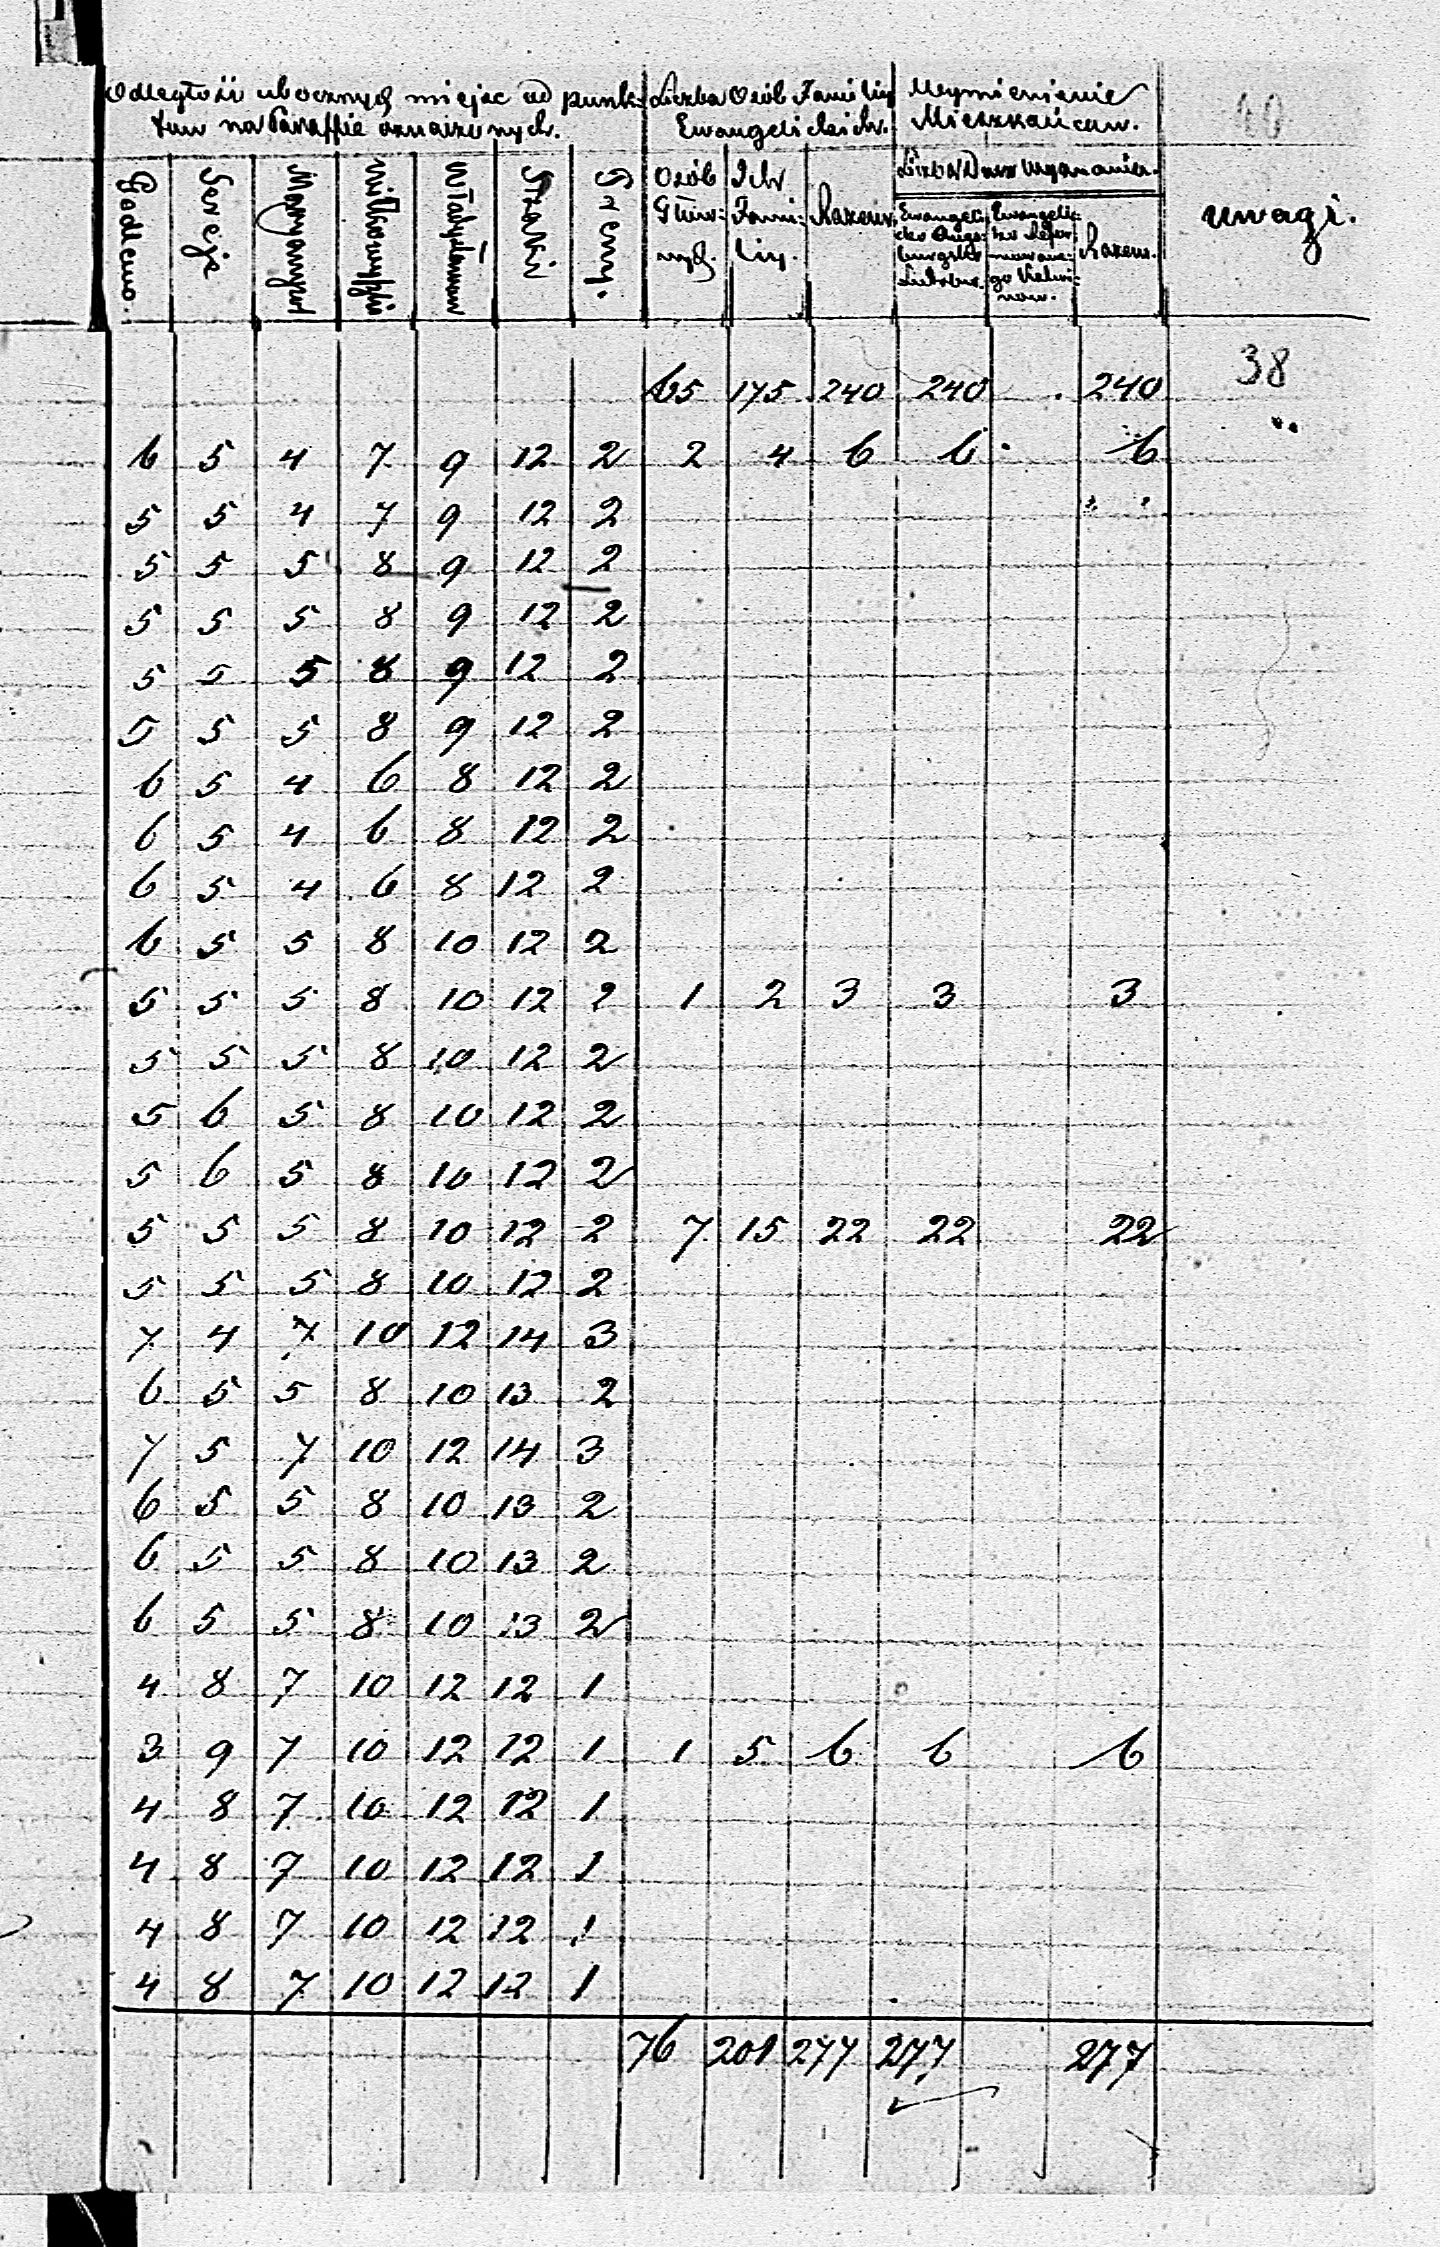 Odległość ubocznych miejsc od punk-
tuw na Paraffie oznaczonych.
Liczba Osób Familiy
Ewangelickich.
Wymienienie
Mieszkańcuw.
40
Godlewo.
Sereje
Maryampol
Wiłkowyszki
Władysławow
Szaki
Preny.
Osób
Głuw-
nych.
Ich
Fami-
liy.
Razem
Liczba Dusz Wyznania.
Ewangelic-
ko Augs-
burgsko
Luterskie.
Ewangelic-
ko Refor-
mowane-
go
Razem.
uwagi.
38
65 175 240 240 . 240
6 5 4 7 9 12 2 2 4 6 6 . 6
5 5 4 7 9 12 2
5 5 5 8 9 12 2
5 5 5 8 9 12 2
5 5 5 8 9 12 2
5 5 5 8 9 12 2
6 5 4 6 8 12 2
6 5 4 6 8 12 2
6 5 4 6 8 12 2
6 5 5 8 10 12 2
5 5 5 8 10 12 2 1 2 3 3 3
5 5 5 8 10 12 2
5 6 5 8 10 12 2
5 6 5 8 10 12 2
5 5 5 8 10 12 2 7 15 22 22 22
5 5 5 8 10 12 2
7 4 7 10 12 14 3
6 5 5 8 10 13 2
7 5 7 10 12 14 3
6 5 5 8 10 13 2
6 5 5 8 10 13 2
6 5 5 8 10 13 2
4 8 7 10 12 12 1
3 9 7 10 12 12 1 1 5 6 6 6
4 8 7 10 12 12 1
4 8 7 10 12 12 1
4 8 7 10 12 12 1
4 8 7 10 12 12 1
76 201 277 277 277